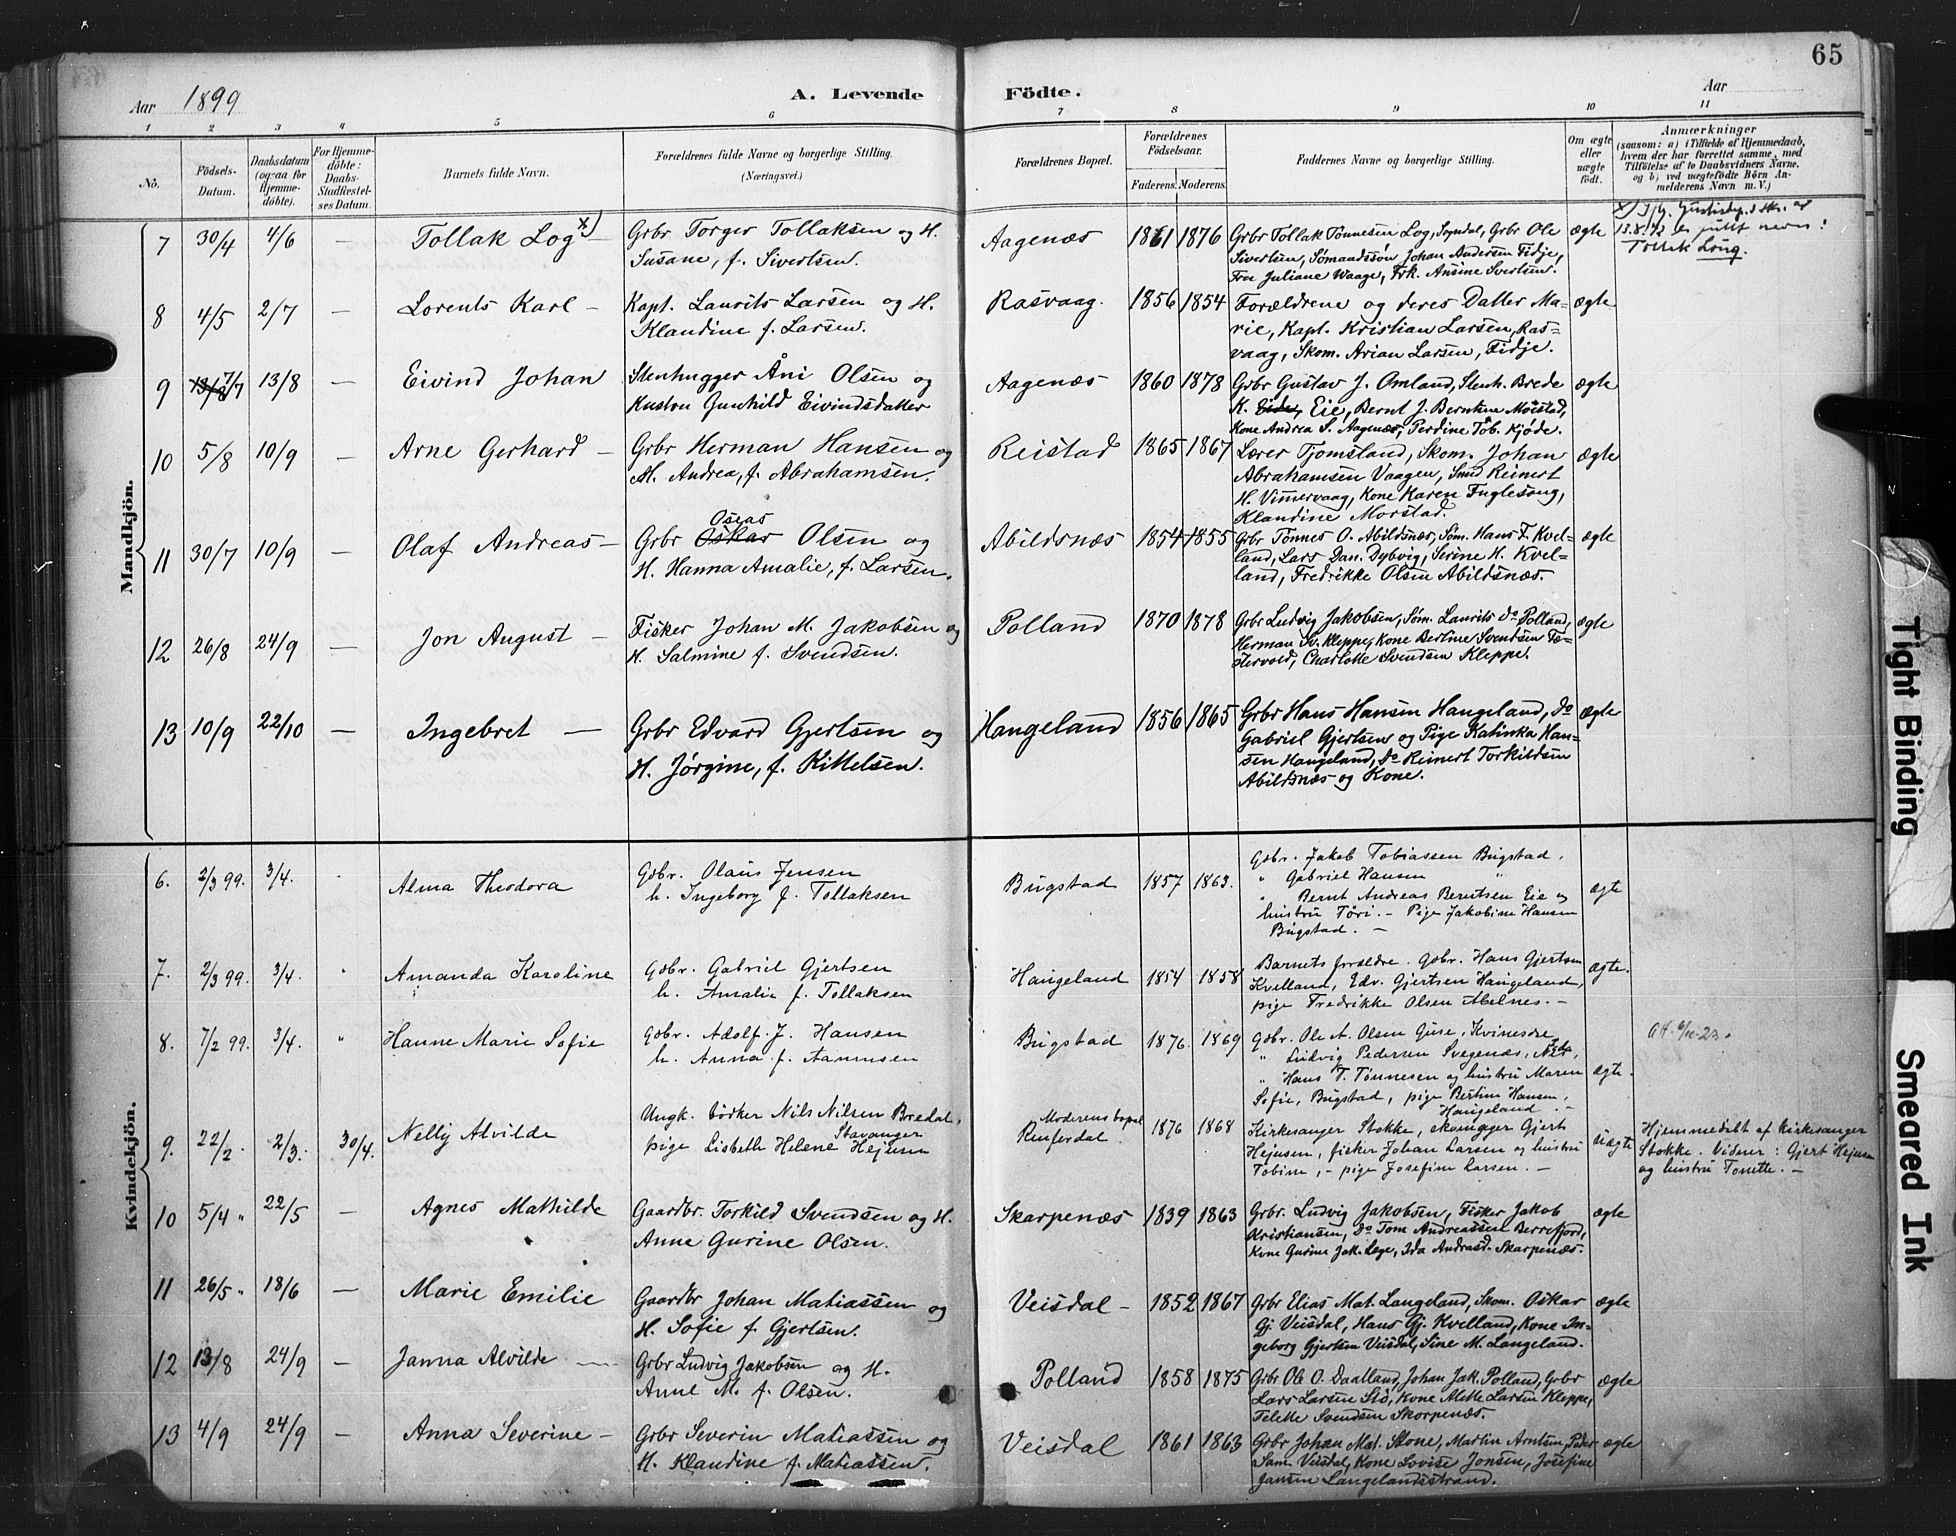 65
Aar 1899 A. Levende Födte. Aar
1 2 3 4 5 6 7 8 9 10 11
No.
Födsels-Datum.
Daabsdatum (ogsaa for Hjemme-döbte).
For Hjemme-döbte: Daabs-Stadfæstel-ses Datum.
Barnets fulde Navn.
Forældrenes fulde Navne og borgerlige Stilling. (Næringsvei.)
Forældrenes Bopæl.
Forældrenes Födselsaar.
Faderens. Moderens.
Faddernes Navne og borgerlige Stilling.
Om ægte eller uægte födt.
Anmærkninger
(saasom: a) i Tilfælde af Hjemmedaab,
hvem der har forrettet samme, med
Tilföielse af to Daabsvidners Navne,
og b) ved uægtefödte Börn An-
melderens Navn m. V.)
Mandkjön.
7 30/4 4/6 — Tollak Log x) — Grbr Torger Tollaksen og H.
Susane, f. Sivertsen.
Aagenæs 1861 1876 Grbr Tollak Tönnesen Log, Sogndal, Grbr Ole
Sivertsen, Sömandssön Johan Andersen Fidje,
Fru Juliane Waage, Frk. Ansine Svertsen.
ægte
navn:
Tollak Loug.
8 4/5 2/7 — Lorents Karl — Kapt. Laurits Larsen og H.
Klandine f. Larsen.
Rasvaag. 1856 1854 Forældrene og deres Datter Ma-
rie, Kapt. Kristian Larsen, Ras-
vaag, Skom. Arian Larsen, Fidje.
ægte
9 7/7 13/8 — Eivind Johan Stenhugger Åni Olsen og
Kustru Gunhild Eivindsdatter
Aagenæs 1860 1878 Grbr Gustav J. Omland, Stenh. Brede
K. Eide, Eie, Bernt J. Berntine Möistad,
Kone Andrea S. Aagenæs, Perdine Tob. Kjöde.
ægte
10 5/8 10/9 — Arne Gerhard — Grbr Herman Hansen og
H. Andrea, f. Abrahamsen.
Reistad 1865 1867 Lærer Tjomsland, Skom. Johan
Abrahamsen Vaagen, Smed Reinert
H. Vimervaag, Kone Karen Fuglesang,
Klandine Morstad.
ægte
11 30/7 10/9 — Olaf Andreas — Grbr Oskar Oseas Olsen og
H. Hanna Amalie, f. Larsen.
Abildsnæs 1854 1855 Grbr Tönnes O. Abildsnæs, Söm. Hans F. Kvel-
land, Lars Dan. Dybvig, Serine H. Kvel-
land, Fredrikke Olsen Abildsnæs.
ægte
12 26/8 24/9 — Jon August — Fisker Johan M. Jakobsen og
H. Salmine f. Svendsen.
Polland 1870 1878 Grbr Ludvig Jakobsen, Söm. Laurits do Polland,
Herman Sv. Kleppe, Kone Bertine Svendsen Fæ-
stervold, Charlotte Svendsen Kleppe.
ægte
13 10/9 22/10 — Ingebret — Grbr Edvard Gjertsen og
H. Jörgine, f. Kittelsen.
Hangeland 1856 1865 Grbr Hans Hansen Hangeland, do
Gabriel Gjertsen og Pige Katinka Han-
sen Hangeland, do Reinert Torkildsen
Abildsnæs og Kone.
ægte
Kvindekjön.
6. 2/3 99. 3/4. Alma Theodora Gdbr. Olaus Jensen
h. Ingeborg f. Tollaksen
Bugstad 1857 1863. Gdbr. Jakob Tobiassen Bugstad.
" Gabriel Hansen "
" Bernt Andreas Berntsen Eie og
hustru Töri. — Pige Jakobine Hansen
Bugstad. —
ægte
7. 2/3 99. 3/4. Amanda Karoline Gdbr. Gabriel Gjertsen
h. Amalie f. Tollaksen
Haugeland 1854 1858 Barnets forældre. Gdbr. Hans Gjertsen
Kvelland, Edv. Gjertsen Haugeland,
pige Fredrikke Olsen Abelnes. —
ægte.
8. 7/2 99. 3/4. " Hanne Marie Sofie Gdbr. Adolf J. Hansen
h. Anna f. Aanensen
Bugstad 1876. 1869 Gdbr. Ole A. Olsen Guse, Kvinesdre
" Ludvig Pedersen Svegenæs,
" Hans T. Tönnesen og hustru Maren
Sofie, Bugstad, pige Bertine Hansen,
Haugeland. —
ægte.
9. 22/2. 2/3. 30/4. Nelly Alvilde Ungk. bödker Nils Nilsen Bredal, Stavanger
pige Lisbeth Helene Hejesen
Moderens bopæl
Renferdal. 1876 1868 Kirkesanger Stokke, skomager Gjert
Hejesen, fisker Johan Larsen og hustru
Tobine, — pige Josefine Larsen. —
uægte
Hjemmedöbt af kirkesanger
Stokke. Vidner: Gjert Hejesen
og hustru Tonette. —
10 5/4 " 22/5 — Agnes Mathilde Gaardbr. Torkild Svendsen og H.
Anne Gurine Olsen.
Skarpenæs 1839 1863 Grbr. Ludvig Jakobsen, Fisker Jakob
Kristiansen, do Tom Andreassen Berrefjord,
Kone Gurine Jak. Lege, Ida Andrasd. Skarpenæs.
ægte
11 26/5 " 18/6 — Marie Emilie Gaardbr Johan Matiassen og
H. Sofie f. Gjertsen.
Veisdal — 1852 1867 Grbr Elias Mat. Langeland, Skom. Oskar
Gj. Veisdal, Hans Gj. Kvelland, Kone In-
geborg Gjertsen Veisdal, Sine M. Langeland.
ægte
12 13/8 24/9 — Janna Alvilde — Grbr Ludvig Jakobsen og H.
Anne M. f. Olsen.
Polland 1858 1875 Grbr Ole O. Daatland, Johan Jak. Polland, Grbr
Lars Larsen Stö, Kone Mette Larsen Kleppe,
Telette Svendsen Skorpenæs.
ægte
13 4/9 24/9 — Anna Severine — Grbr Severin Matiassen og
H. Klandine f. Matiassen.
Veisdal 1861 1863 Grbr Johan Mat. Stone, Martin Arntsen, Peder
Sam. Veisdal, Kone Lovise Jonsen, Josefine
Jansen Langelandsstrand.
ægte
Tight Binding
Smeared Ink